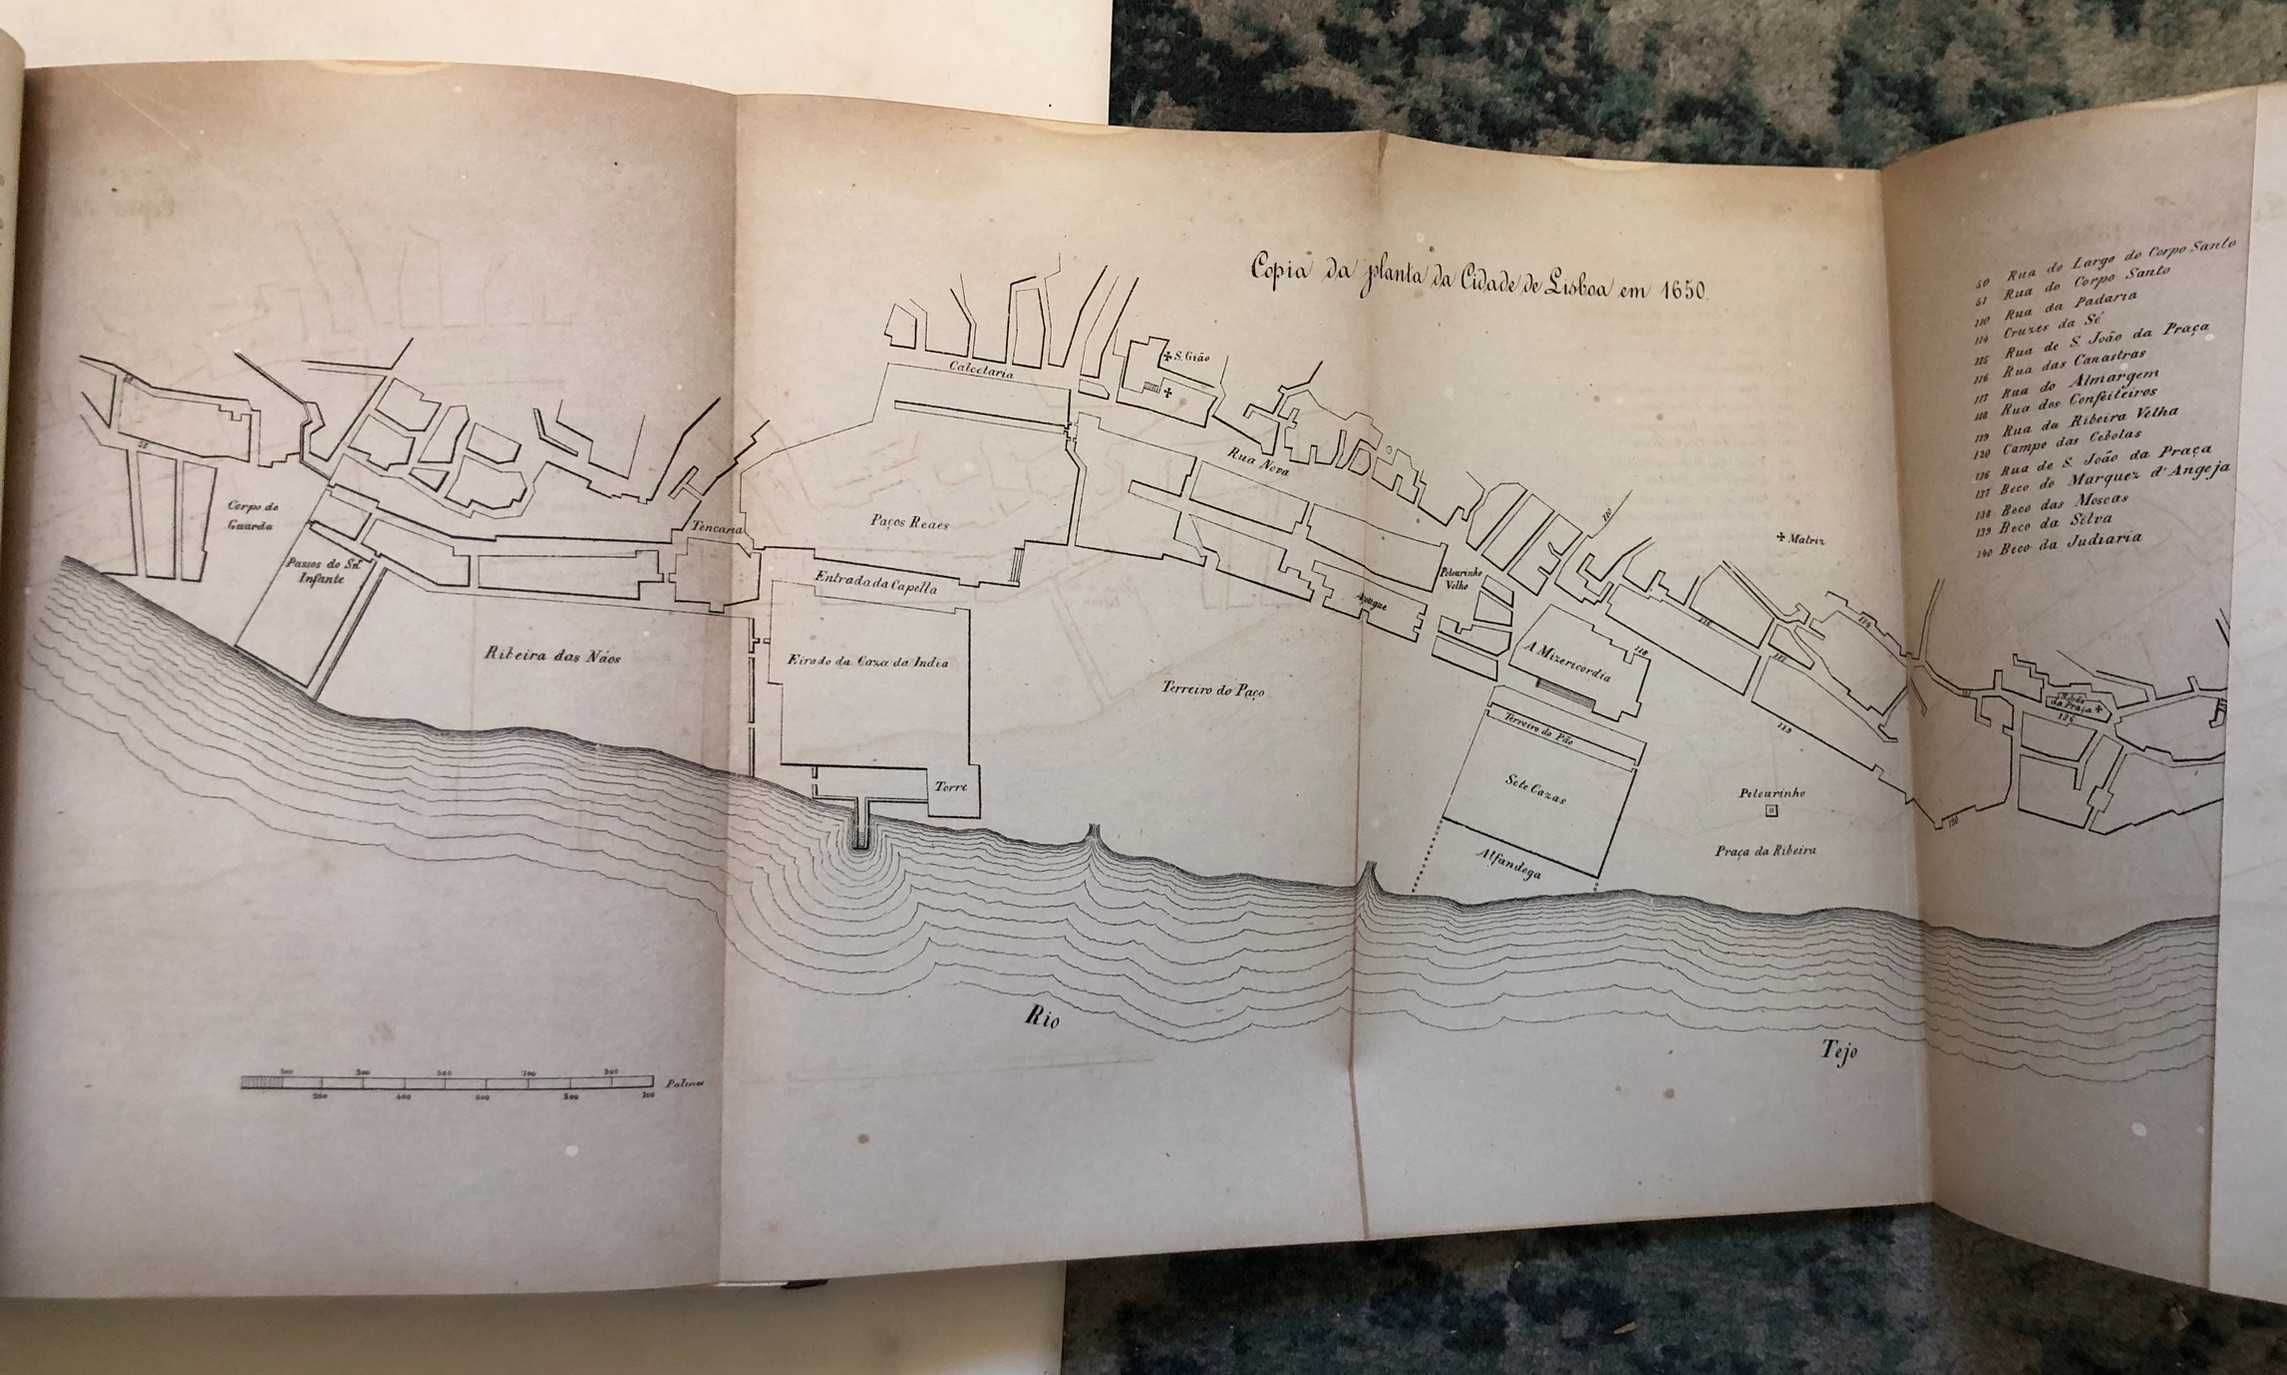 Copia da planta da Cidade de Lisboa em 1650.
50 Rua do Largo do Corpo Santo
51 Rua do Corpo Santo
110 Rua da Padaria
114 Cruzes da Sé
115 Rua de S. João da Praça
116 Rua das Canastras
117 Rua do Almargem
118 Rua dos Confeiteiros
119 Rua da Ribeira Velha
120 Campo das Cebolas
136 Rua de S. João da Praça
137 Beco do Marquez d'Angeja
138 Beco das Moscas
139 Beco da Silva
140 Beco da Judiaria
S. Gião
Calcetaria
Rua Nova
Corpo de
Guarda
Tencaria
Paços Reaes
110
Matriz
Passos do Snr.
Infante
Entrada da Capella
Pelourinho
Velho
Açougue
Ribeira das Náos
Eirado da Caza da India
Terreiro do Paço
A Mizericordia
118
116
117
114
da Praça
Terreiro do Pão
119
Sete Cazas
Torre
Pelourinho
120
Praça da Ribeira
Alfandega
Rio
Tejo
100 300 500 700 900
200 400 600 800
Palmos